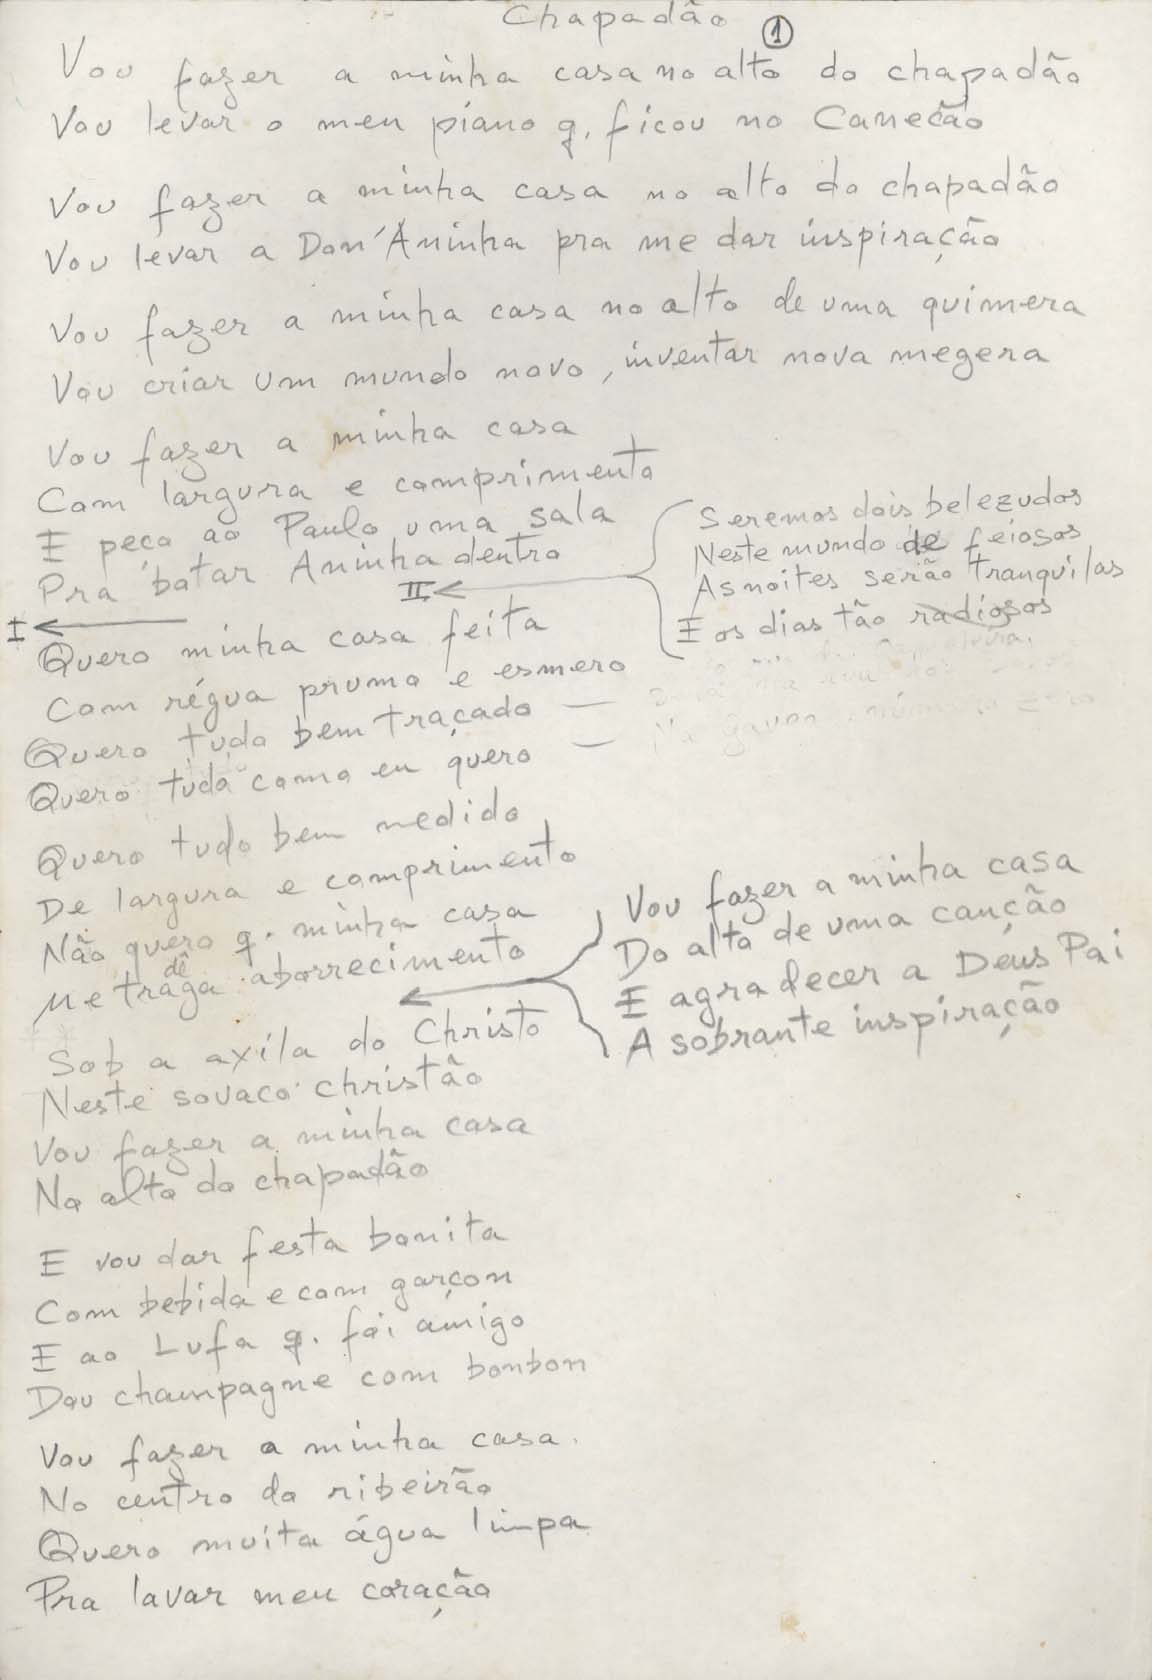 Chapadão
1
Vou fazer a minha casa no alto do chapadão
Vou levar o meu piano q. ficou no Canecão
Vou fazer a minha casa no alto do chapadão
Vou levar a Don'Aninha pra me dar inspiração
Vou fazer a minha casa no alto de uma quimera
Vou criar um mundo novo, inventar nova megera
Vou fazer a minha casa
Com largura e comprimento
E peço ao Paulo uma sala
Pra botar Aninha dentro
I
II
Seremos dois belezudos
Neste mundo de feiosos
As noites serão tranquilas
E os dias tão radiosos
Quero minha casa feita
Com régua prumo e esmero
Quero tudo bem traçado —
Quero tudo como eu quero —
Quero tudo bem medido
De largura e comprimento
Não quero q. minha casa
dê
Me traga aborrecimento
Vou fazer a minha casa
Do alto de uma canção
E agradecer a Deus Pai
A sobrante inspiração
Sob a axila do Christo
Neste sovaco christão
Vou fazer a minha casa
No alto do chapadão
E vou dar festa bonita
Com bebida e com garçon
E ao Lufa q. foi amigo
Dou champagne com bonbon
Vou fazer a minha casa
No centro do ribeirão
Quero muita água limpa
Pra lavar meu coração